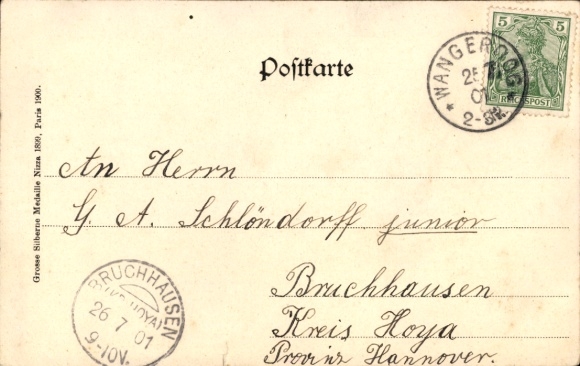 Postkarte
5 5
REICHSPOST
WANGEROOG
25
01
2-3N.
Grosse Silberne Medaille Nizza 1899, Paris 1900.
An Herrn
G. A. Schlöndorff junior
Bruchhausen
Kreis Hoya
Provinz Hannover.
BRUCHHAUSEN
(KR. HOYA)
26 7 01
9-10V.